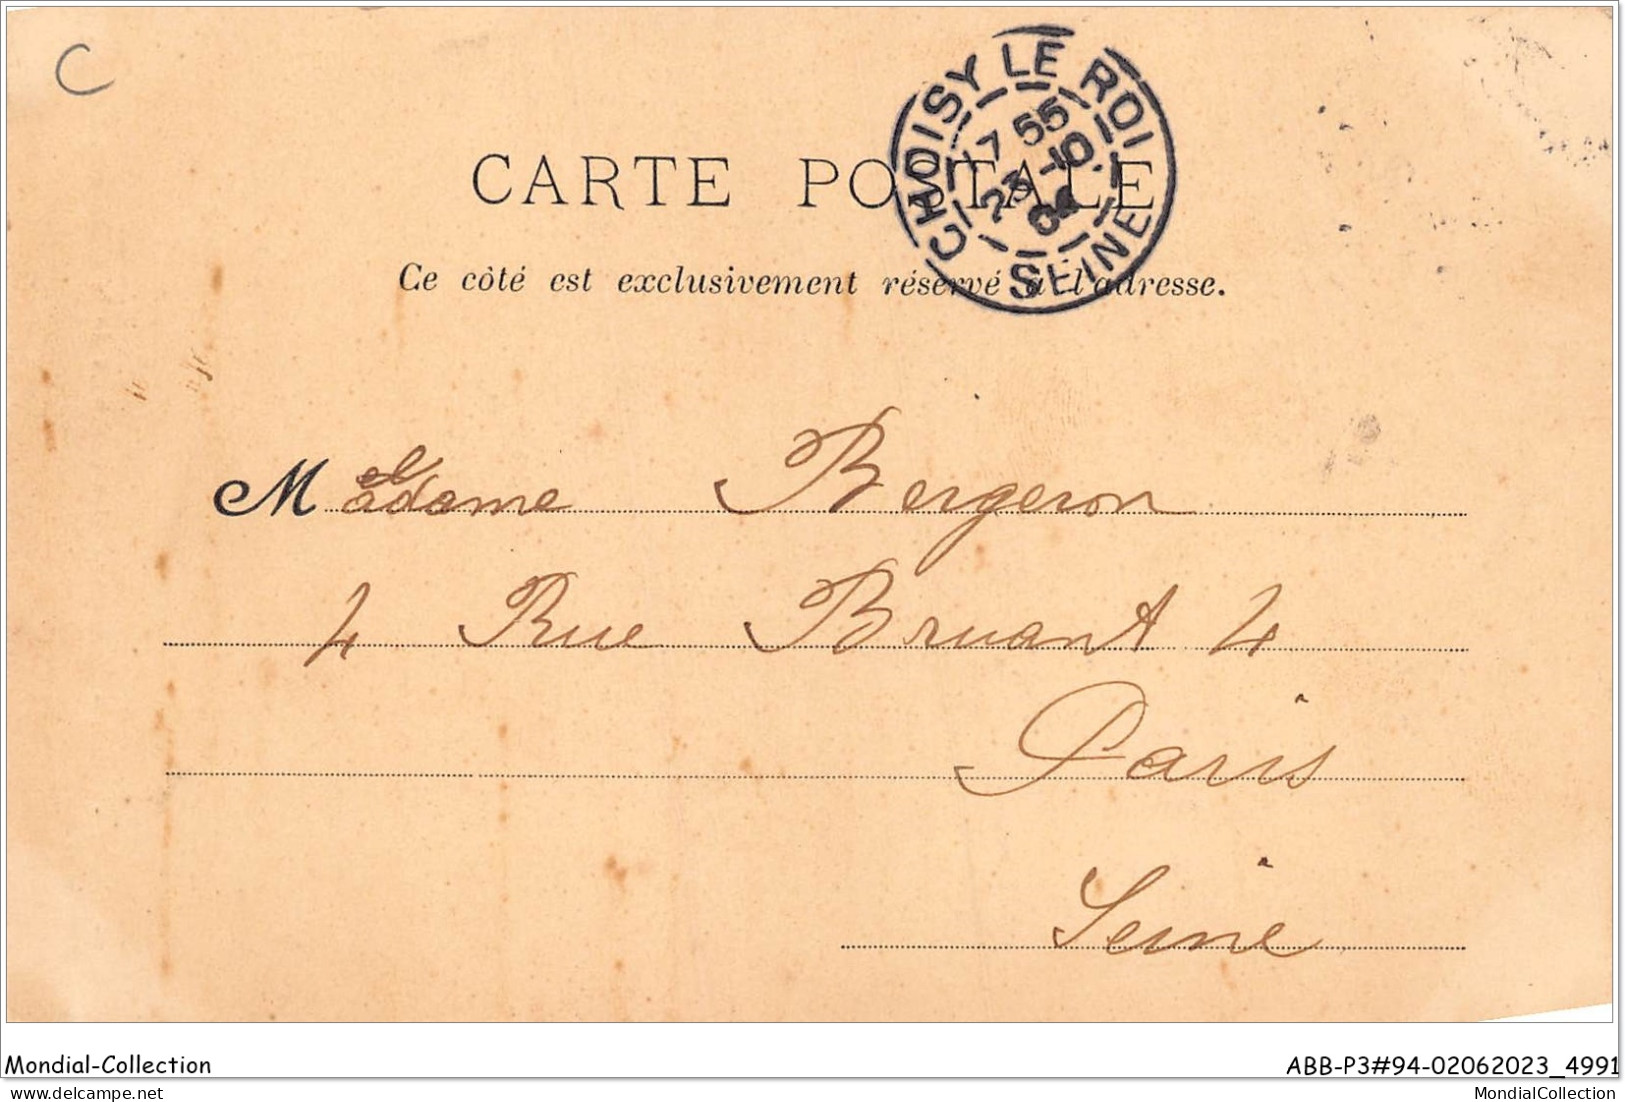 C
CHOISY LE ROI
17 55
23 -10
SEINE
CARTE POSTALE
Ce côté est exclusivement réservé à l'adresse.
Madame Bergeron
4 Rue Bruant 4
Paris
Seine
Mondial-Collection
ABB-P3#94-02062023_4991
delcampe.net
MondialCollection